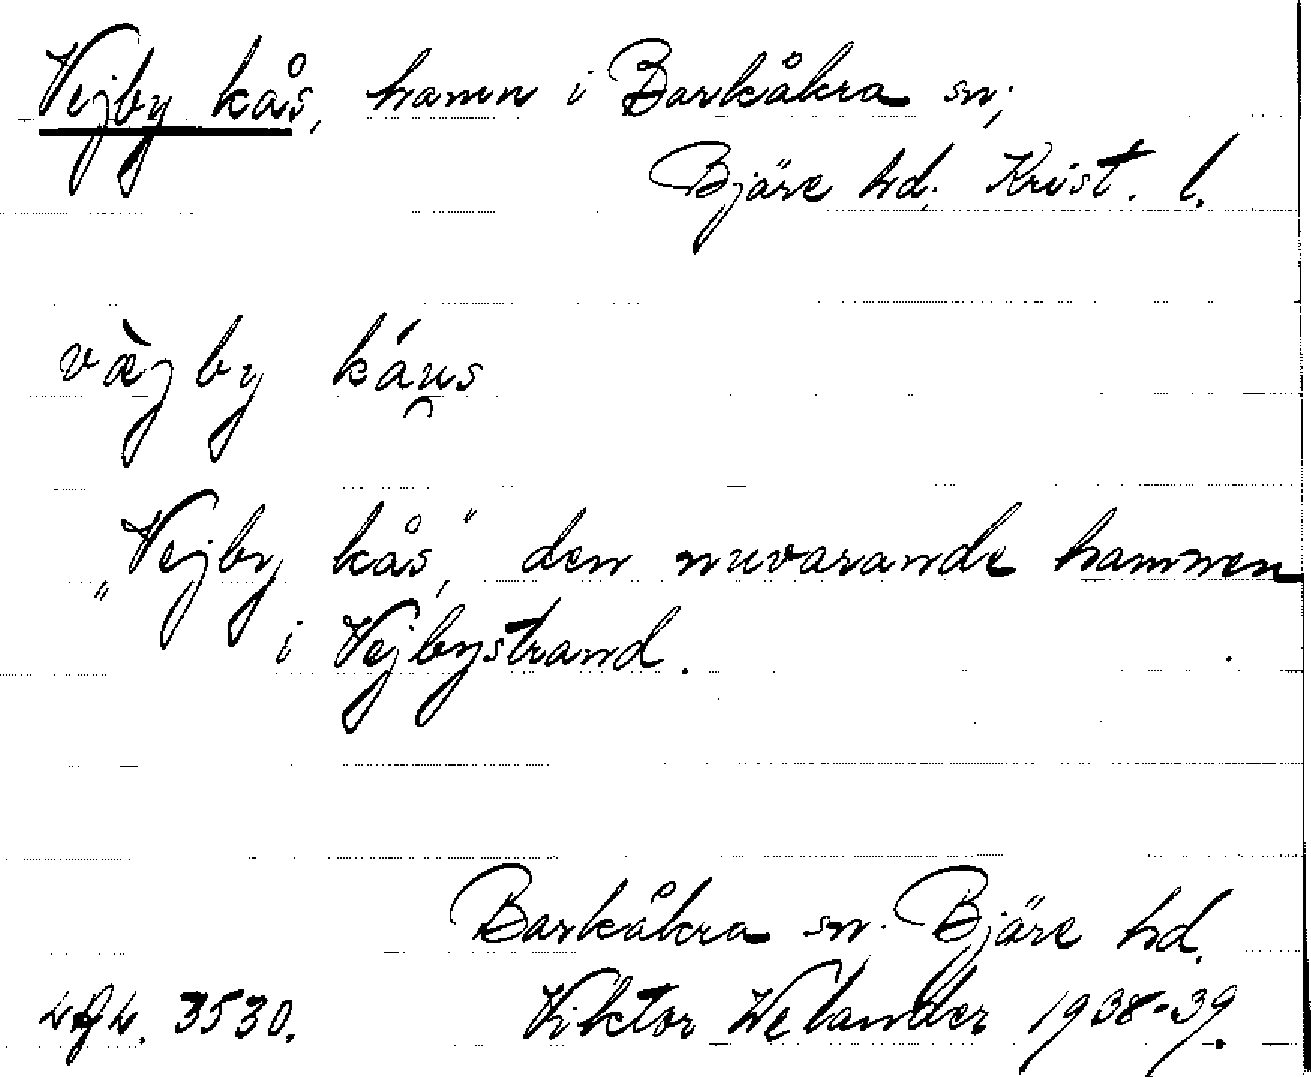 Vejby kås, hamn i Barkåkra sn;
Bjäre hd; Krist. l.
væ̀jby káu̯s
„Vejby kås", den nuvarande hamnen
i Vejbystrand.
Barkåkra sn. Bjäre hd.
3530. Viktor Welander 1938-39.